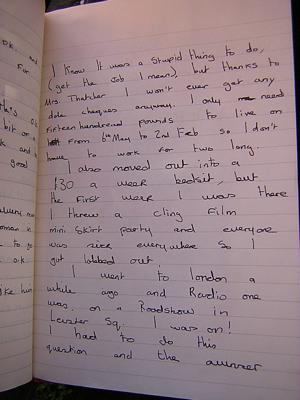 OK. and
For
I know it was a stupid thing to do,
(get the job I mean), but thanks to
Mrs. Thatcher I won't ever get any
dole cheques anyway. I only need
fifteen hundread pounds to live on
from 6th May to 2nd Feb so I don't
have to work for two long.
I also moved out into a
£30 a week bedsit, but
the first week I was there
I threw a cling film
mini skirt party and everyone
was sick everywhere so I
got lobbed out.
I went to london a
while ago and Radio one
was on a Roadshow in
Leicester Sq. I was on!
I had to do this
question and the
bit
good